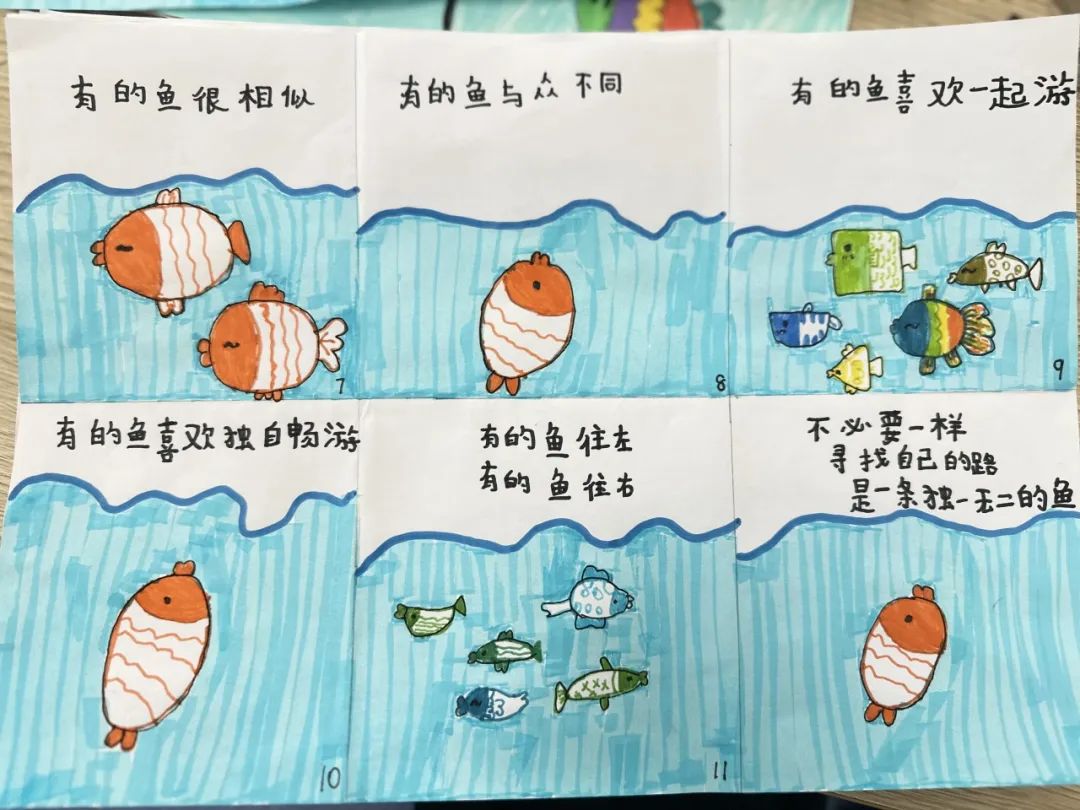 有的鱼很相似
7
有的鱼与众不同
8
有的鱼喜欢一起游
9
有的鱼喜欢独自畅游
10
有的鱼往左
有的鱼往右
11
不必要一样
寻找自己的路
是一条独一无二的鱼